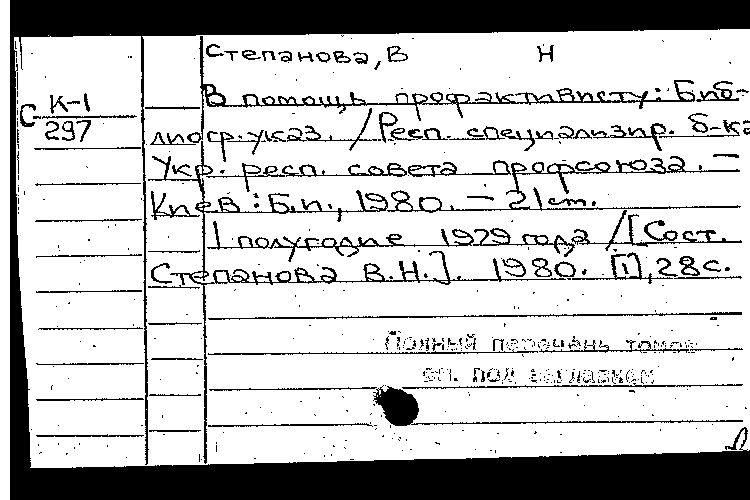 Степанова, В Н
С К-1
297
В помощь профактивисту: Биб-
лиогр. указ. / Респ. специализир. б-ка
Укр. респ. совета профсоюза. —
Киев: Б.и., 1980. — 21 см.
I полугодие 1979 года / [Сост.
Степанова В.Н.]. 1980. [1], 28 с.
Полный перечень томов
см. под заглавием